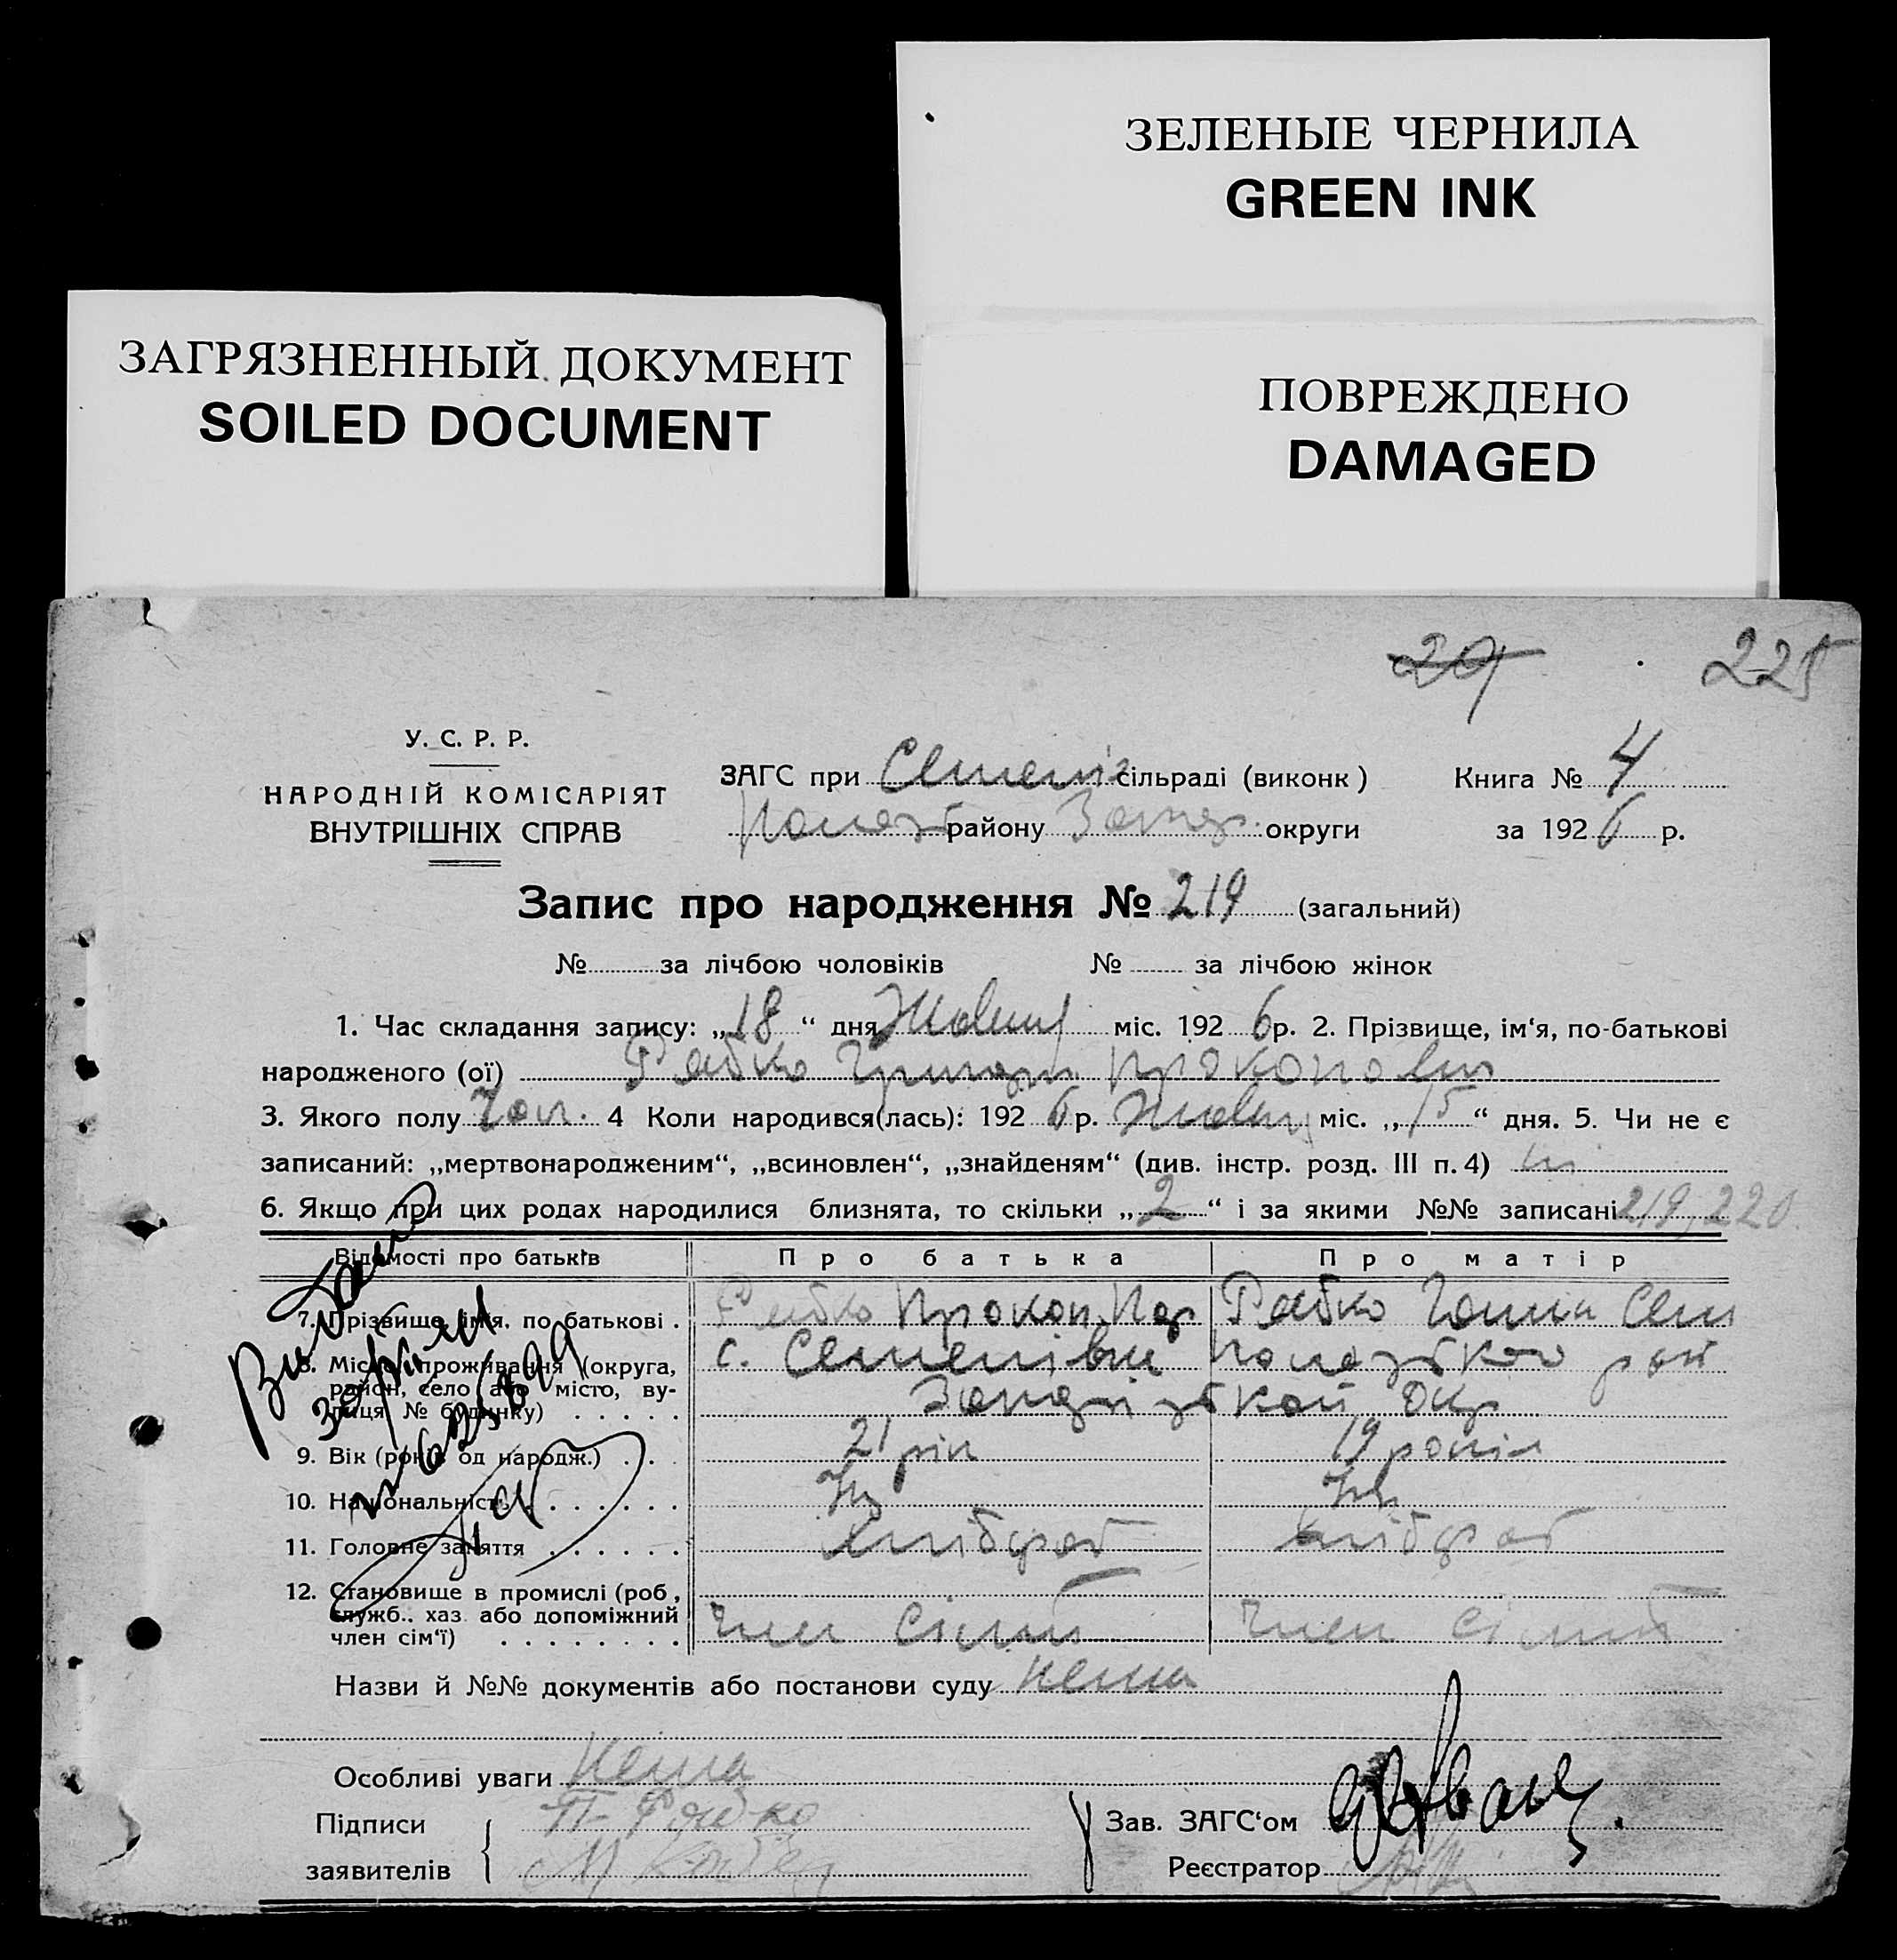 ЗЕЛЕНЫЕ ЧЕРНИЛА
GREEN INK
ЗАГРЯЗНЕННЫЙ ДОКУМЕНТ
SOILED DOCUMENT
ПОВРЕЖДЕНО
DAMAGED
29 225
У. С. Р. Р.
НАРОДНІЙ КОМІСАРІЯТ
ВНУТРІШНІХ СПРАВ
ЗАГС при Семенів сільраді (виконк) Книга № 4
району округи за 1926 р.
Запис про народження № 219 (загальний)
№ за лічбою чоловіків № за лічбою жінок
1. Час складання запису: „18“ дня Жовтн міс. 1926 р. 2. Прізвище, ім‘я, по-батькові
народженого (ої) Рябко Григорій Прокопович
3. Якого полу Чол. 4 Коли народився(лась): 1926 р. Жовтн міс. „15“ дня. 5. Чи не є
записаний: „мертвонародженим“, „всиновлен“, „знайденям“ (див. інстр. розд. III п. 4) ні
6. Якщо при цих родах народилися близнята, то скільки „2“ і за якими №№ записані 219, 220
Відомості про батьків Про батька Про матір
7. Прізвище, ім‘я, по батькові . Рябко Прокоп Рябко Ганна Сем
8. Місце проживання (округа, район, село або місто, вулиця № будинку) . . . . . с. Семенівки
Окр
9. Вік (років од народж.) . . . 21 рік 19 років
10. Національність . . . . . . .
11. Головне заняття . . . . . . хлібороб хлібороб
12. Становище в промислі (роб., служб., хаз. або допоміжний член сім‘ї) . . . . . . . . член сімї член сімї
Назви й №№ документів або постанови суду нема
Особливі уваги Нема
Підписи П. Рябко
заявителів
Зав. ЗАГС‘ом
Реєстратор